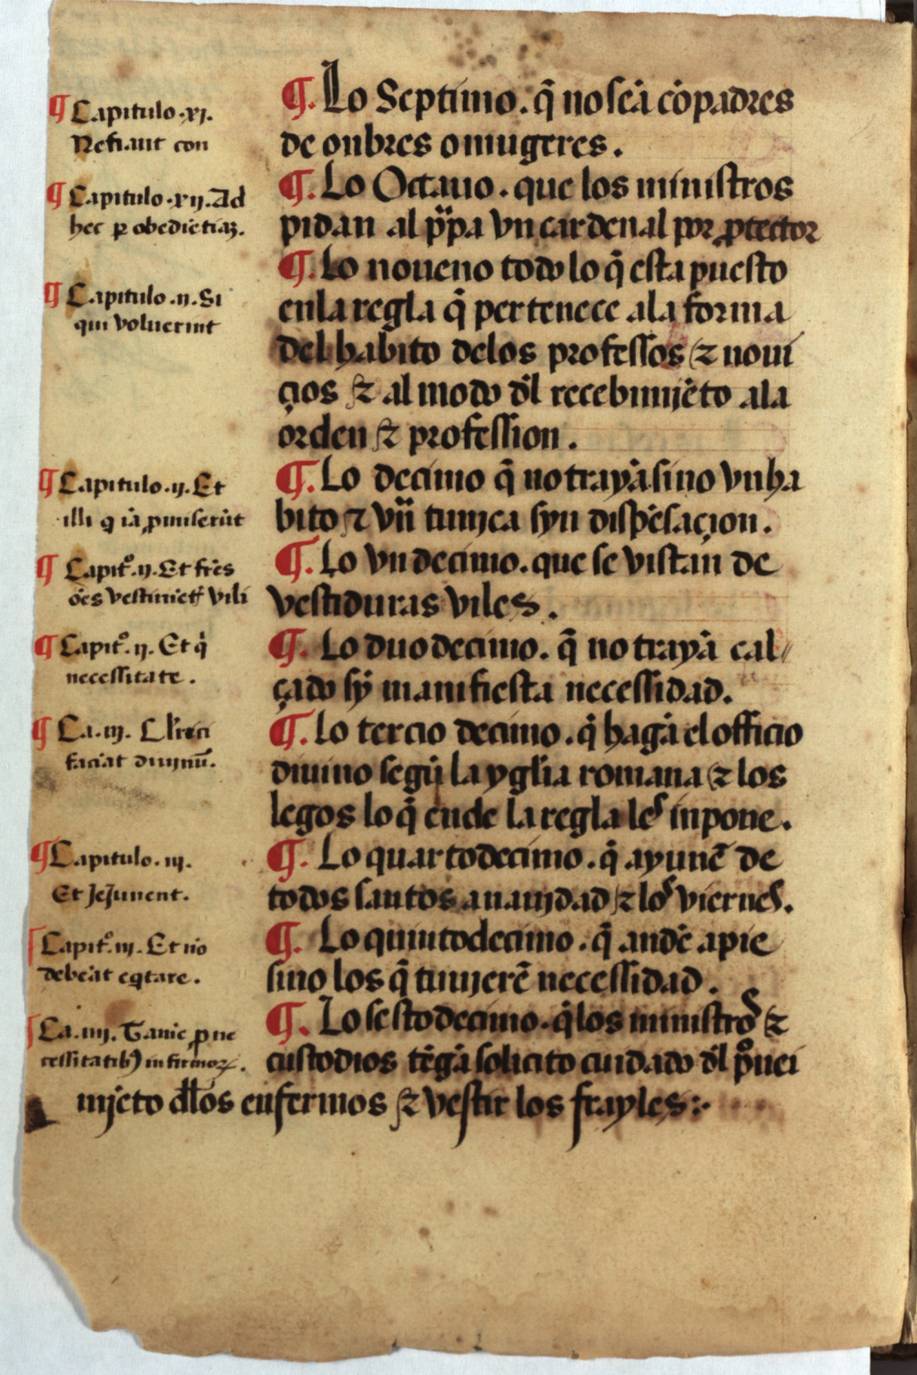 ¶ Capitulo .xj.
Nefiant con
¶ Capitulo .xij. Ad
hec ꝑ obediētiaꝫ.
¶ Capitulo .ij. Si
qui voluerint
¶ Capitulo .ij. Et
illi q iā ꝓmiserūt
¶ Capit̄º .ij. Et fr̄es
ōēs vestimēt vili
¶ Capit̄º .ij. Et q̄
necessitate.
¶ Ca .iij. Cl̄rici
faciāt diuinū.
¶ Capitulo .iij.
Et Jejunent.
Capit̄º .iij. Et nō
debeāt eq̄tare.
Ca .iiij. ꝓ ne
cessitatibꝫ infirmoꝝ.
¶. Lo Septimo. q̄ no seā cōpadres
de onbres o mugeres.
¶. Lo Octauo. que los ministros
pidan al p̄pa vn cardenal por ꝓtector
¶. Lo noueno todo lo q̄ esta puesto
enla regla q̄ pertenece ala forma
del habito delos professos ⁊ noui
çios ⁊ al modo dl̄ recebimjēto ala
orden ⁊ profession.
¶. Lo decimo q̄ no trayā sino vn ha
bito ⁊ vn̄ tunjca syn dispēsaçion.
¶. Lo vn decimo. que se vistan de
vestiduras viles.
¶. Lo duo decimo. q̄ no trayā cal//
çado sȳ manifiesta necessidad.
¶. Lo tercio decimo. q̄ hagā el officio
diuino segū la yglīa romana ⁊ los
legos lo q̄ ende la regla les inpone.
¶. Lo quarto decimo. q̄ ayunē de
todos santos a naujdad ⁊ los viernes.
¶. Lo quinto decimo. q̄ andē a pie
sino los q̄ tuujerē necessidad.
¶. Lo sesto decimo. q̄ los ministros ⁊
custodios tēgā solicito cuidado dl̄ ꝓuei
mjēto dl̄os enfermos ⁊ vestir los frayles:·